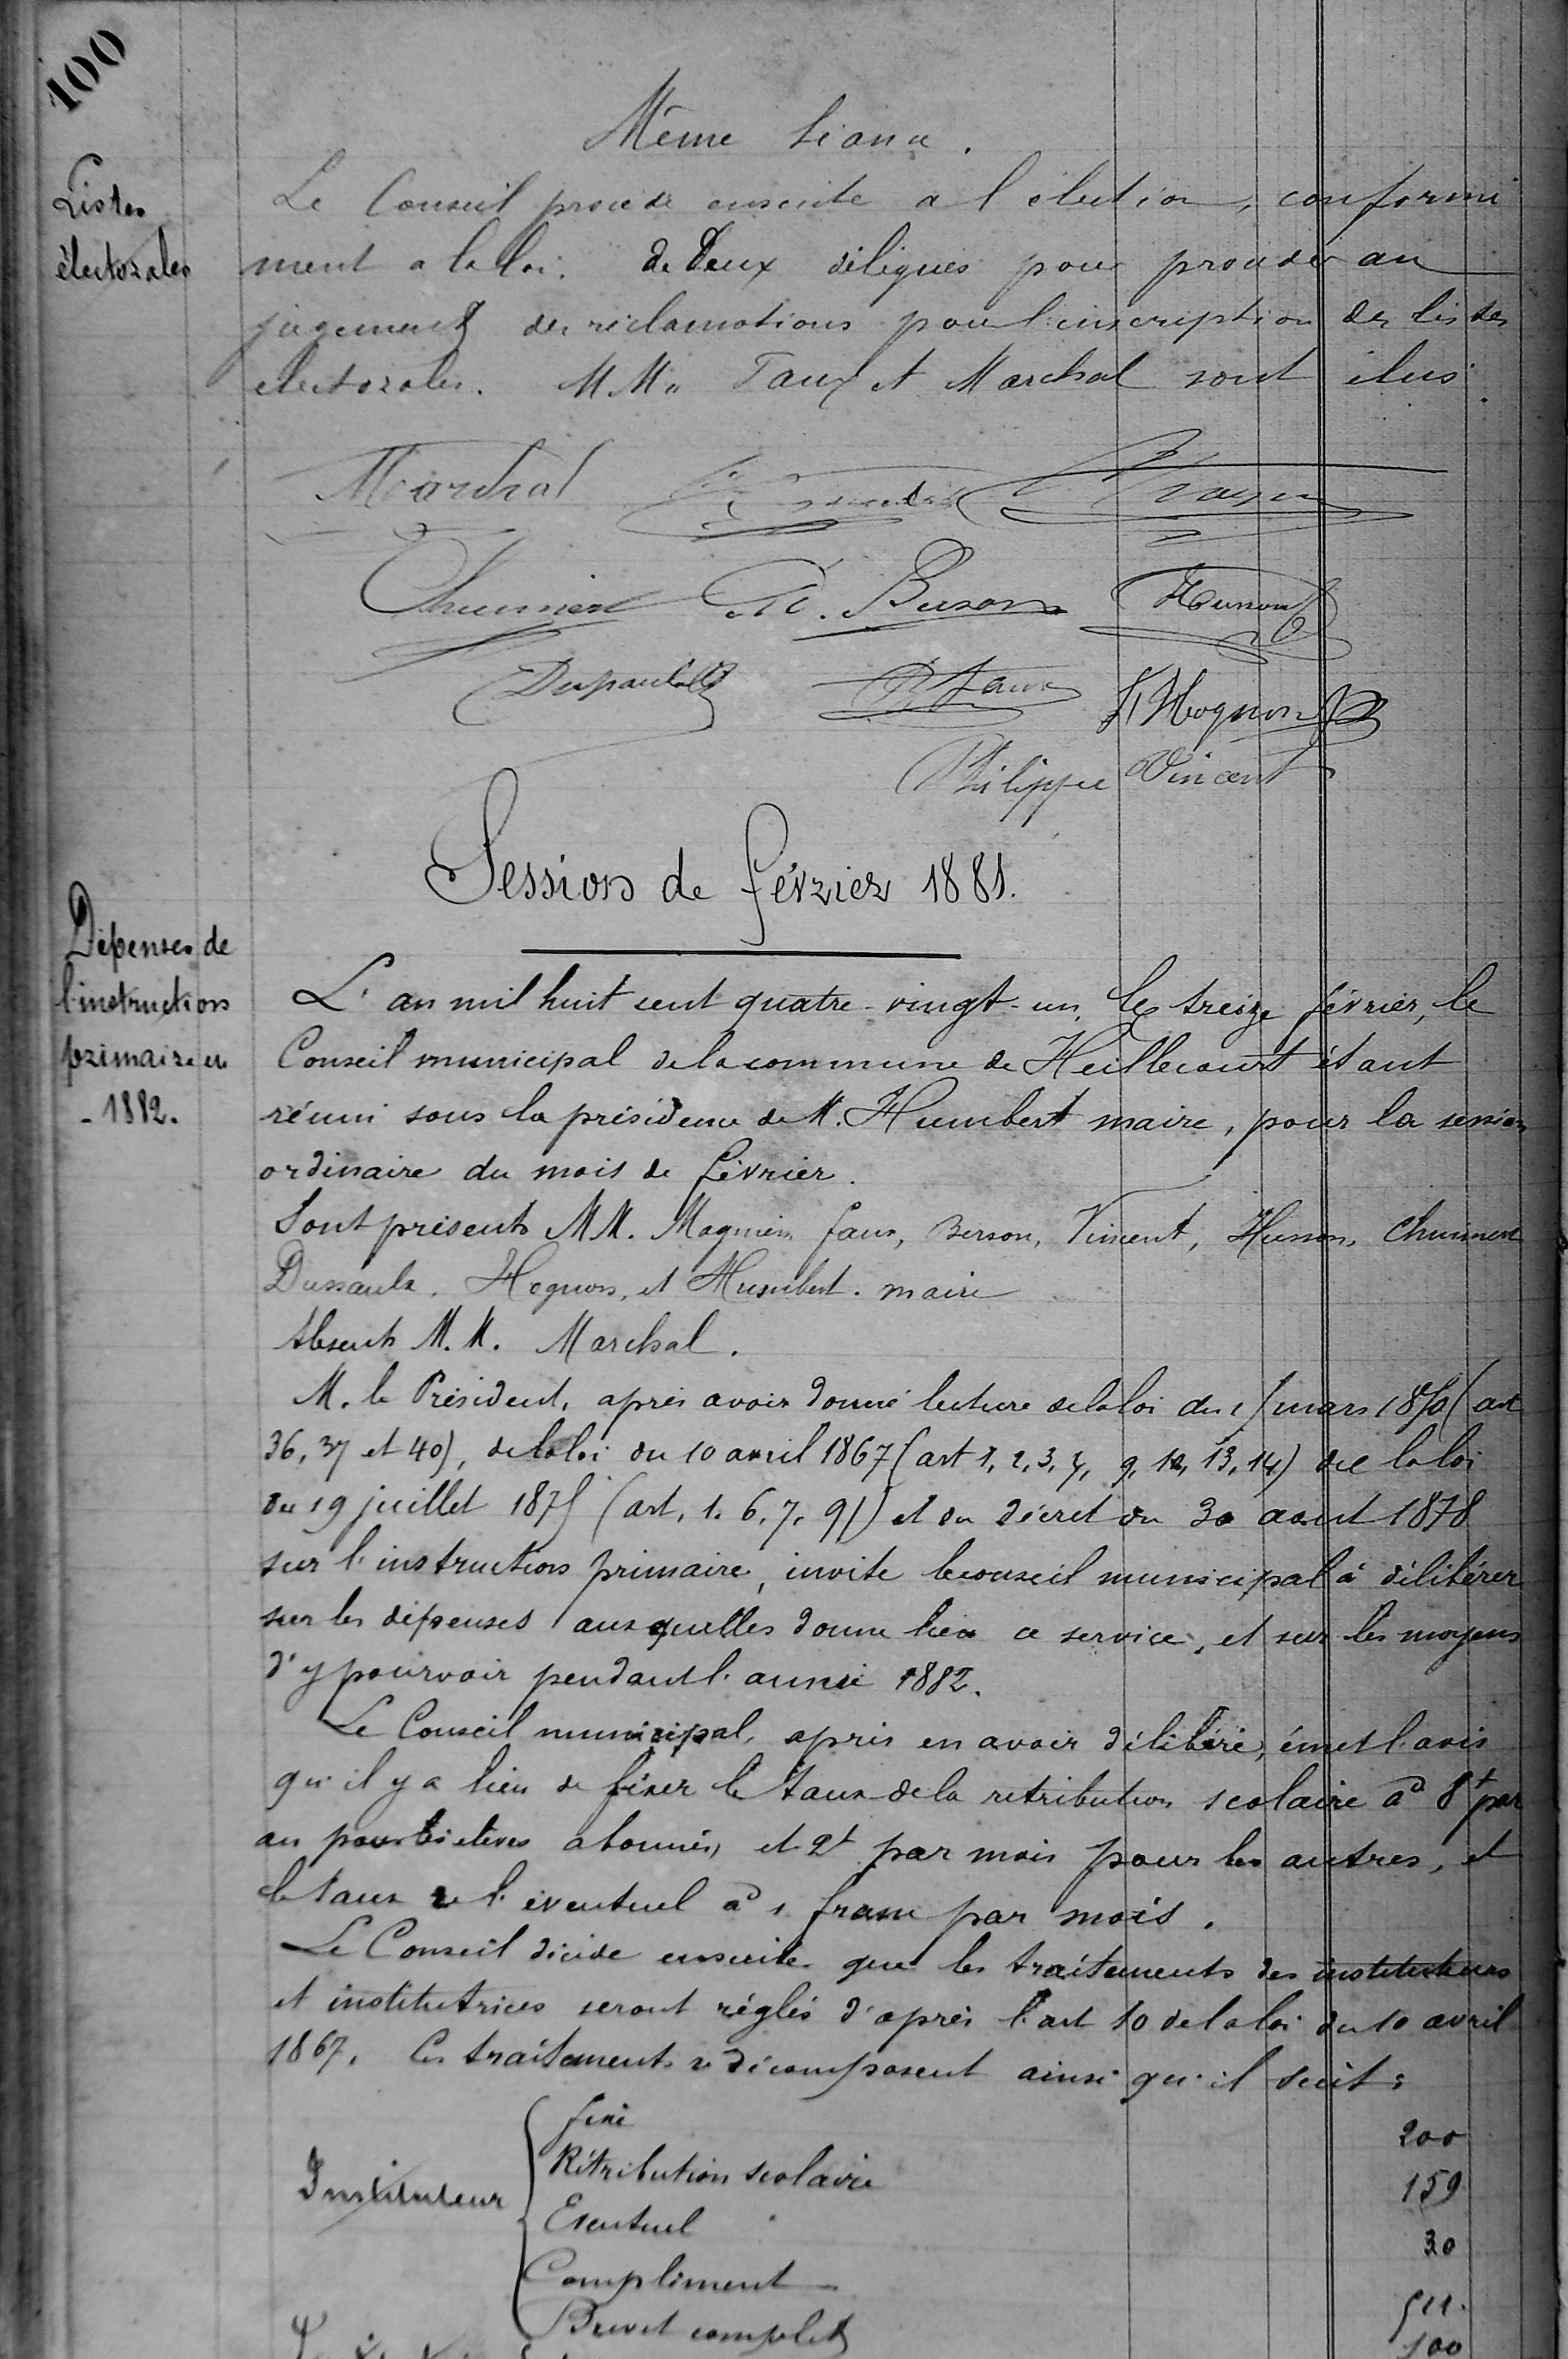 100
Même séance.
Listes
électorales
Le Conseil procède ensuite a l'élection, conformé
ment a la loi. de Deux délégués pour procéder au
jugement des réclamations pour l'inscription des listes
electorales. M.M. Faux et Marchal sont élus.
Marchal
Chumier Ch. Berson Husson
Dussaulx Faux Hognon
Philippe Vincent
Session de février 1881.
Dépenses de
l'instruction
primaire en
- 1882.
L'an mil huit cent quatre-vingt-un, le treize février, le
Conseil municipal de la commune de Heillecourt étant
réuni sous la présidence de M. Humbert maire, pour la session
ordinaire du mois de février.
Sont présents MM. Magnien Faux, Berson, Vincent, Husson, Chumier
Dussaulx, Hognon, et Humbert. maire
Absents M.M. Marchal.
M. le Président, après avoir donné lecture de la loi du mars 1850 (art
36, 37 et 40), de la loi du 10 avril 1867 (art 1, 2, 3, 4, 9, 12, 13, 14) de la loi
du 19 juillet 1875 (art, 1. 6, 7, 9) et du décret du 30 août 1878
sur l'instruction primaire, invite le conseil municipal à délibérer
sur les dépenses auxquelles donne lieu ce service, et sur les moyens
d'y pourvoir pendant l'année 1882.
Le Conseil municipal, après en avoir délibéré, émet l'avis
qu'il y a lieu de fixer le taux de la retribution scolaire à 8f par
an pour les élèves abonnés, et 2f par mois pour les autres, et
le taux de l'éventuel à 1 franc par mois.
Le Conseil décide ensuite que les traitements des instituteurs
et institutrices seront réglés d'après l'art 10 de la loi du 10 avril
1867. Ces traitements se décomposent ainsi qu'il suit:
Instituteur
fixe 200
Rétribution scolaire 159
Eventuel 30
Complément 511.
Brevet complet 100